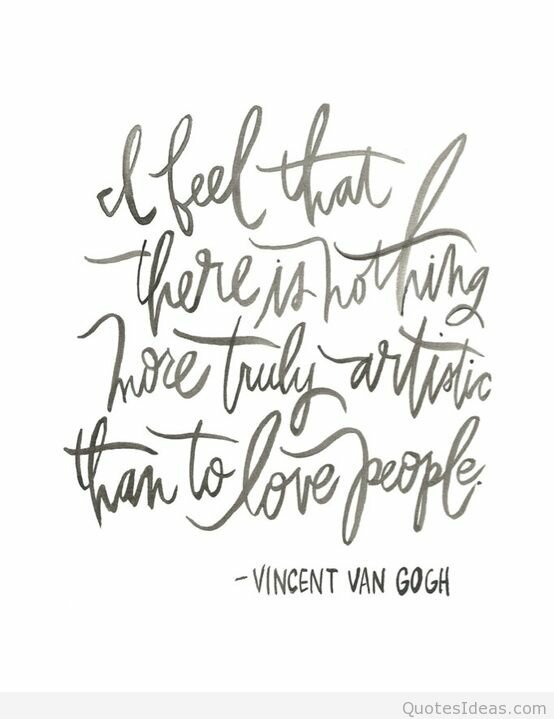 I feel that
there is nothing
more truly artistic
than to love people.
-VINCENT VAN GOGH
QuotesIdeas.com